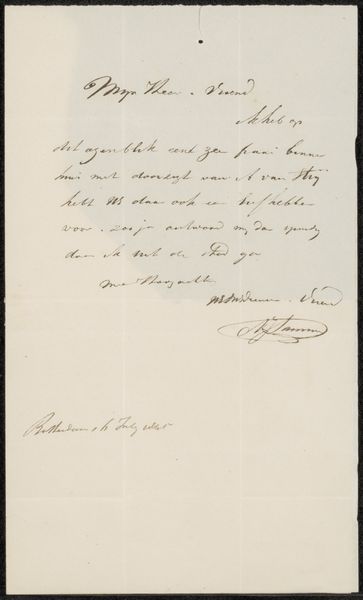 Mijn Heer & Vriend
Ik heb op
dit ogenblik eene zeer fraai binne
huis met doorzigt van A van Strij
hebt UE daar ook ee liefhebber
voor. zoo ja antwoord mij dan spoedig
dan ik uit de stad ga
met Hoogacht
UE Dienaar & Vriend
AJ Lamme
Rotterdam 16 July 1845